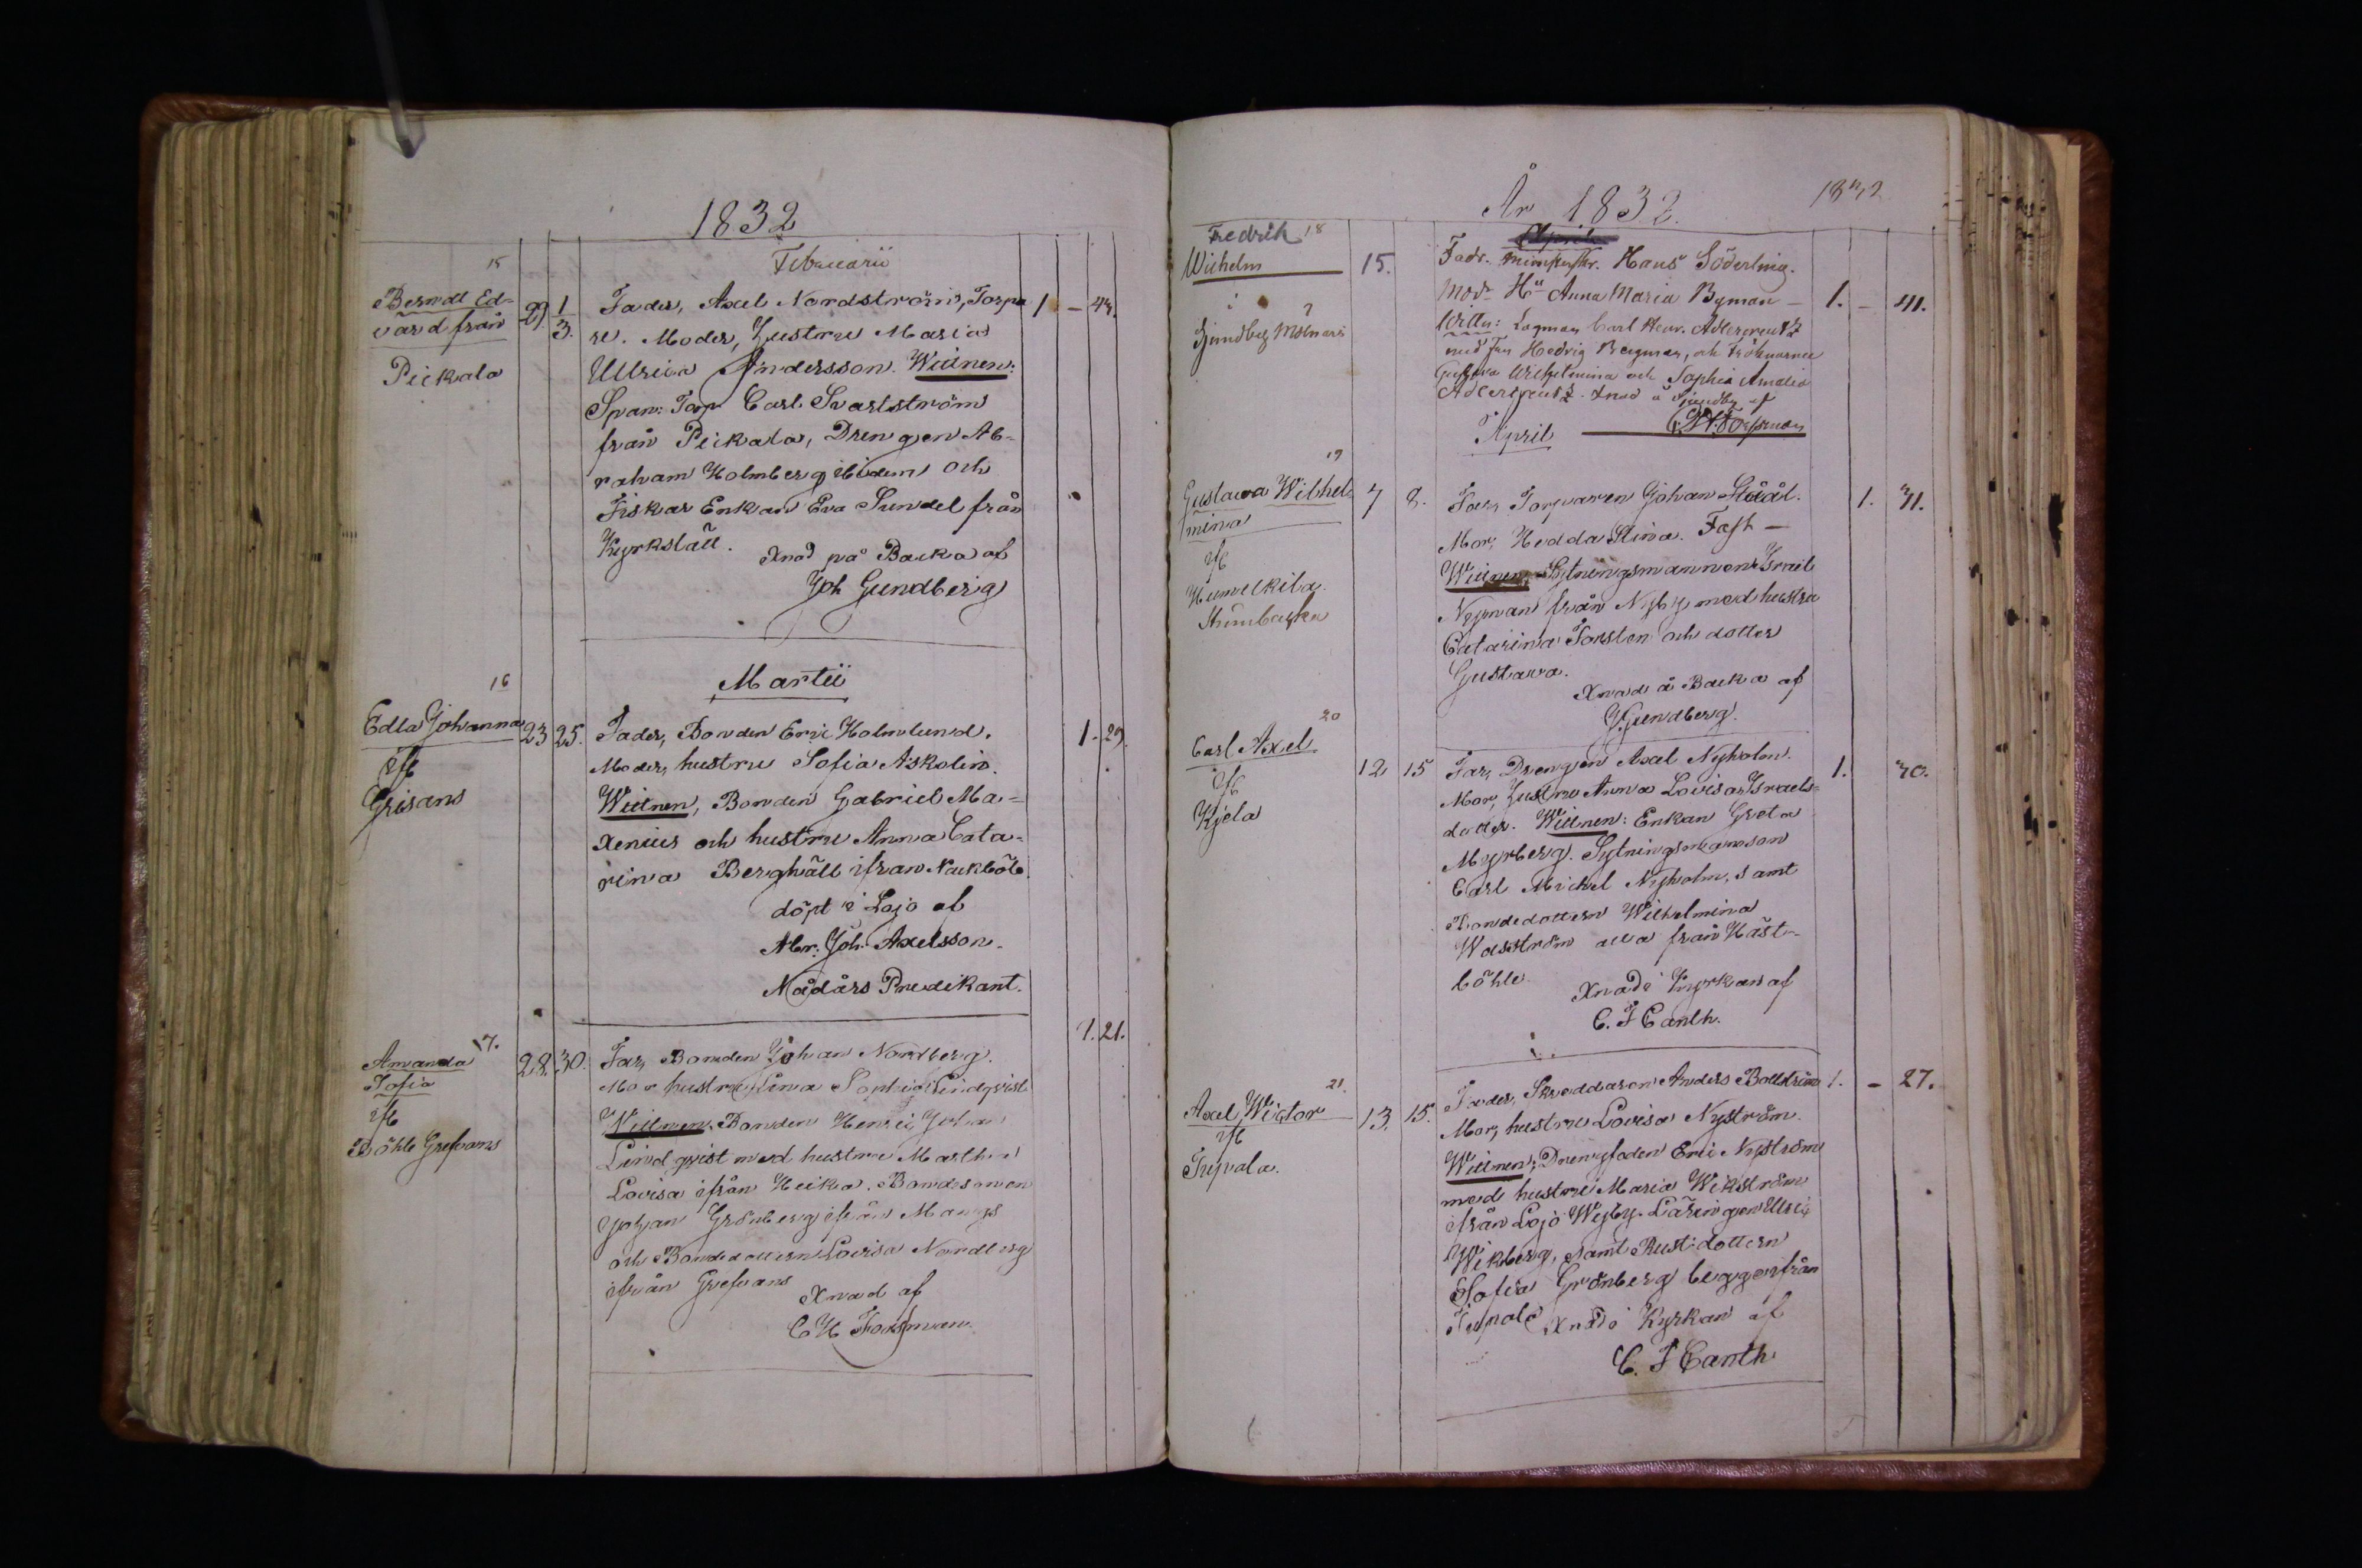 1832
Februarii
15
Berndt Ed-
vard från
Pickala
29 1
3.
Fader, Axel Nordström, Torpa
re. Moder, Hustru Maria
Ullrica Andersson. Wittnen:
Torp Carl Svartström
från Pickala, Drengen Ab-
raham Holmberg ibidem och
Fiskar Enkan Eva Sundel från
Kyrkslätt.
Xnad på Backa af
Joh Gundberg
1 - 43.
Martii
16
Edla Johanna
if
Grisans
23 25.
Fader, Bonden Eric Holmlund.
Moder, hustru Sofia Askolin.
Wittnen, Bonden Gabriel Ma-
xenius och hustru Anna Cata-
rina Berghäll ifran Nackböle.
döpt i Lojo af
Abr. Joh. Axelsson.
Nådårs Predikant.
1. 29.
17.
Amanda
Sofia
if
Böhle Grefvans
28. 30.
Far, Bonden Johan Nordberg.
Mor hustru Lina Sophia Lindqvist
Wittnen. Bonden Henric Johan
Lindqvist med hustru Martha
Lovisa ifrån Heika. Bondesonen
Johan Grönberg ifrån Mangs
och Bondedottern Lovisa Nordberg
ifrån Grefvans
Xnad af
C H Forsman.
1. 21.
År 1832.
1832
18
Fredrik
Wilhelm
i
Sjundby Mölnars
15.
Fadr. Hans Söderling.
Modr Hu Anna Maria Byman
Wittn: Lagman Carl Henr. Adlercreutz
med Fru Hedvig Bergman, och Fröknarne
Gustava Wilhelmina och Sophia Amalia
Adlercreutz. Xnad å Sjundby af
C.H. Forsman
1. - 41.
April
19
Gustava Wilhel-
mina
if
Humelkila
7 8.
Far, Torparen Johan Stål.
Mor, Hedda Stina Fast
Wittnen, Sytningsmannen Israel
Nyman från Nyby med hustru
Catarina Torsten och dotter
Gustava.
Xnad å Backa af
J Gundberg.
1. 31.
20
Carl Axel
if
Kjela
12 15
Far, Drengen Axel Nyholm.
Mor, Hustru Anna Lovisa Israels-
dotter. Wittnen: Enkan Greta
Myrberg. Sytningsmanson
Carl Michel Nyholm, samt
Bondedottern Wilhelmina
Wasström alla från Häst-
böhle.
Xnad i Kyrkan af
C. F Canth.
1. 30.
21
Axel Wictor
if
Tupala.
13. 15.
Fader, Skreddaren Anders Bollström
Mor, hustru Lovisa Nyström.
Wittnen, Drengfaden Eric Nyström
med hustru Maria Wikström
ifrån Lojo Wejby. Läringen Ulric
Wikberg, samt Rust dottern
Sofia Grönberg begge ifrån
Tupala Xnad i Kyrkan af
C. F Canth
1. - 27.